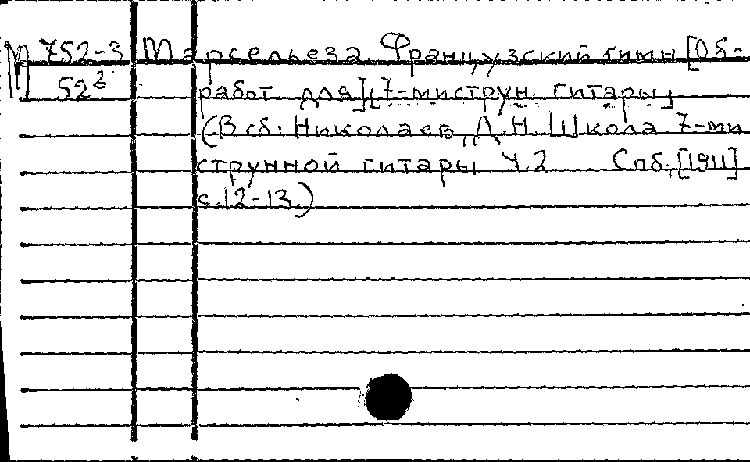 М 752-3 Марсельеза. Французский гимн [Об-
52² работ. для] [7-миструн. гитары]
(В сб: Николаев, Д.Н. Школа 7-ми
струнной гитары Ч.2 Спб, [1911]
с.12-13.)